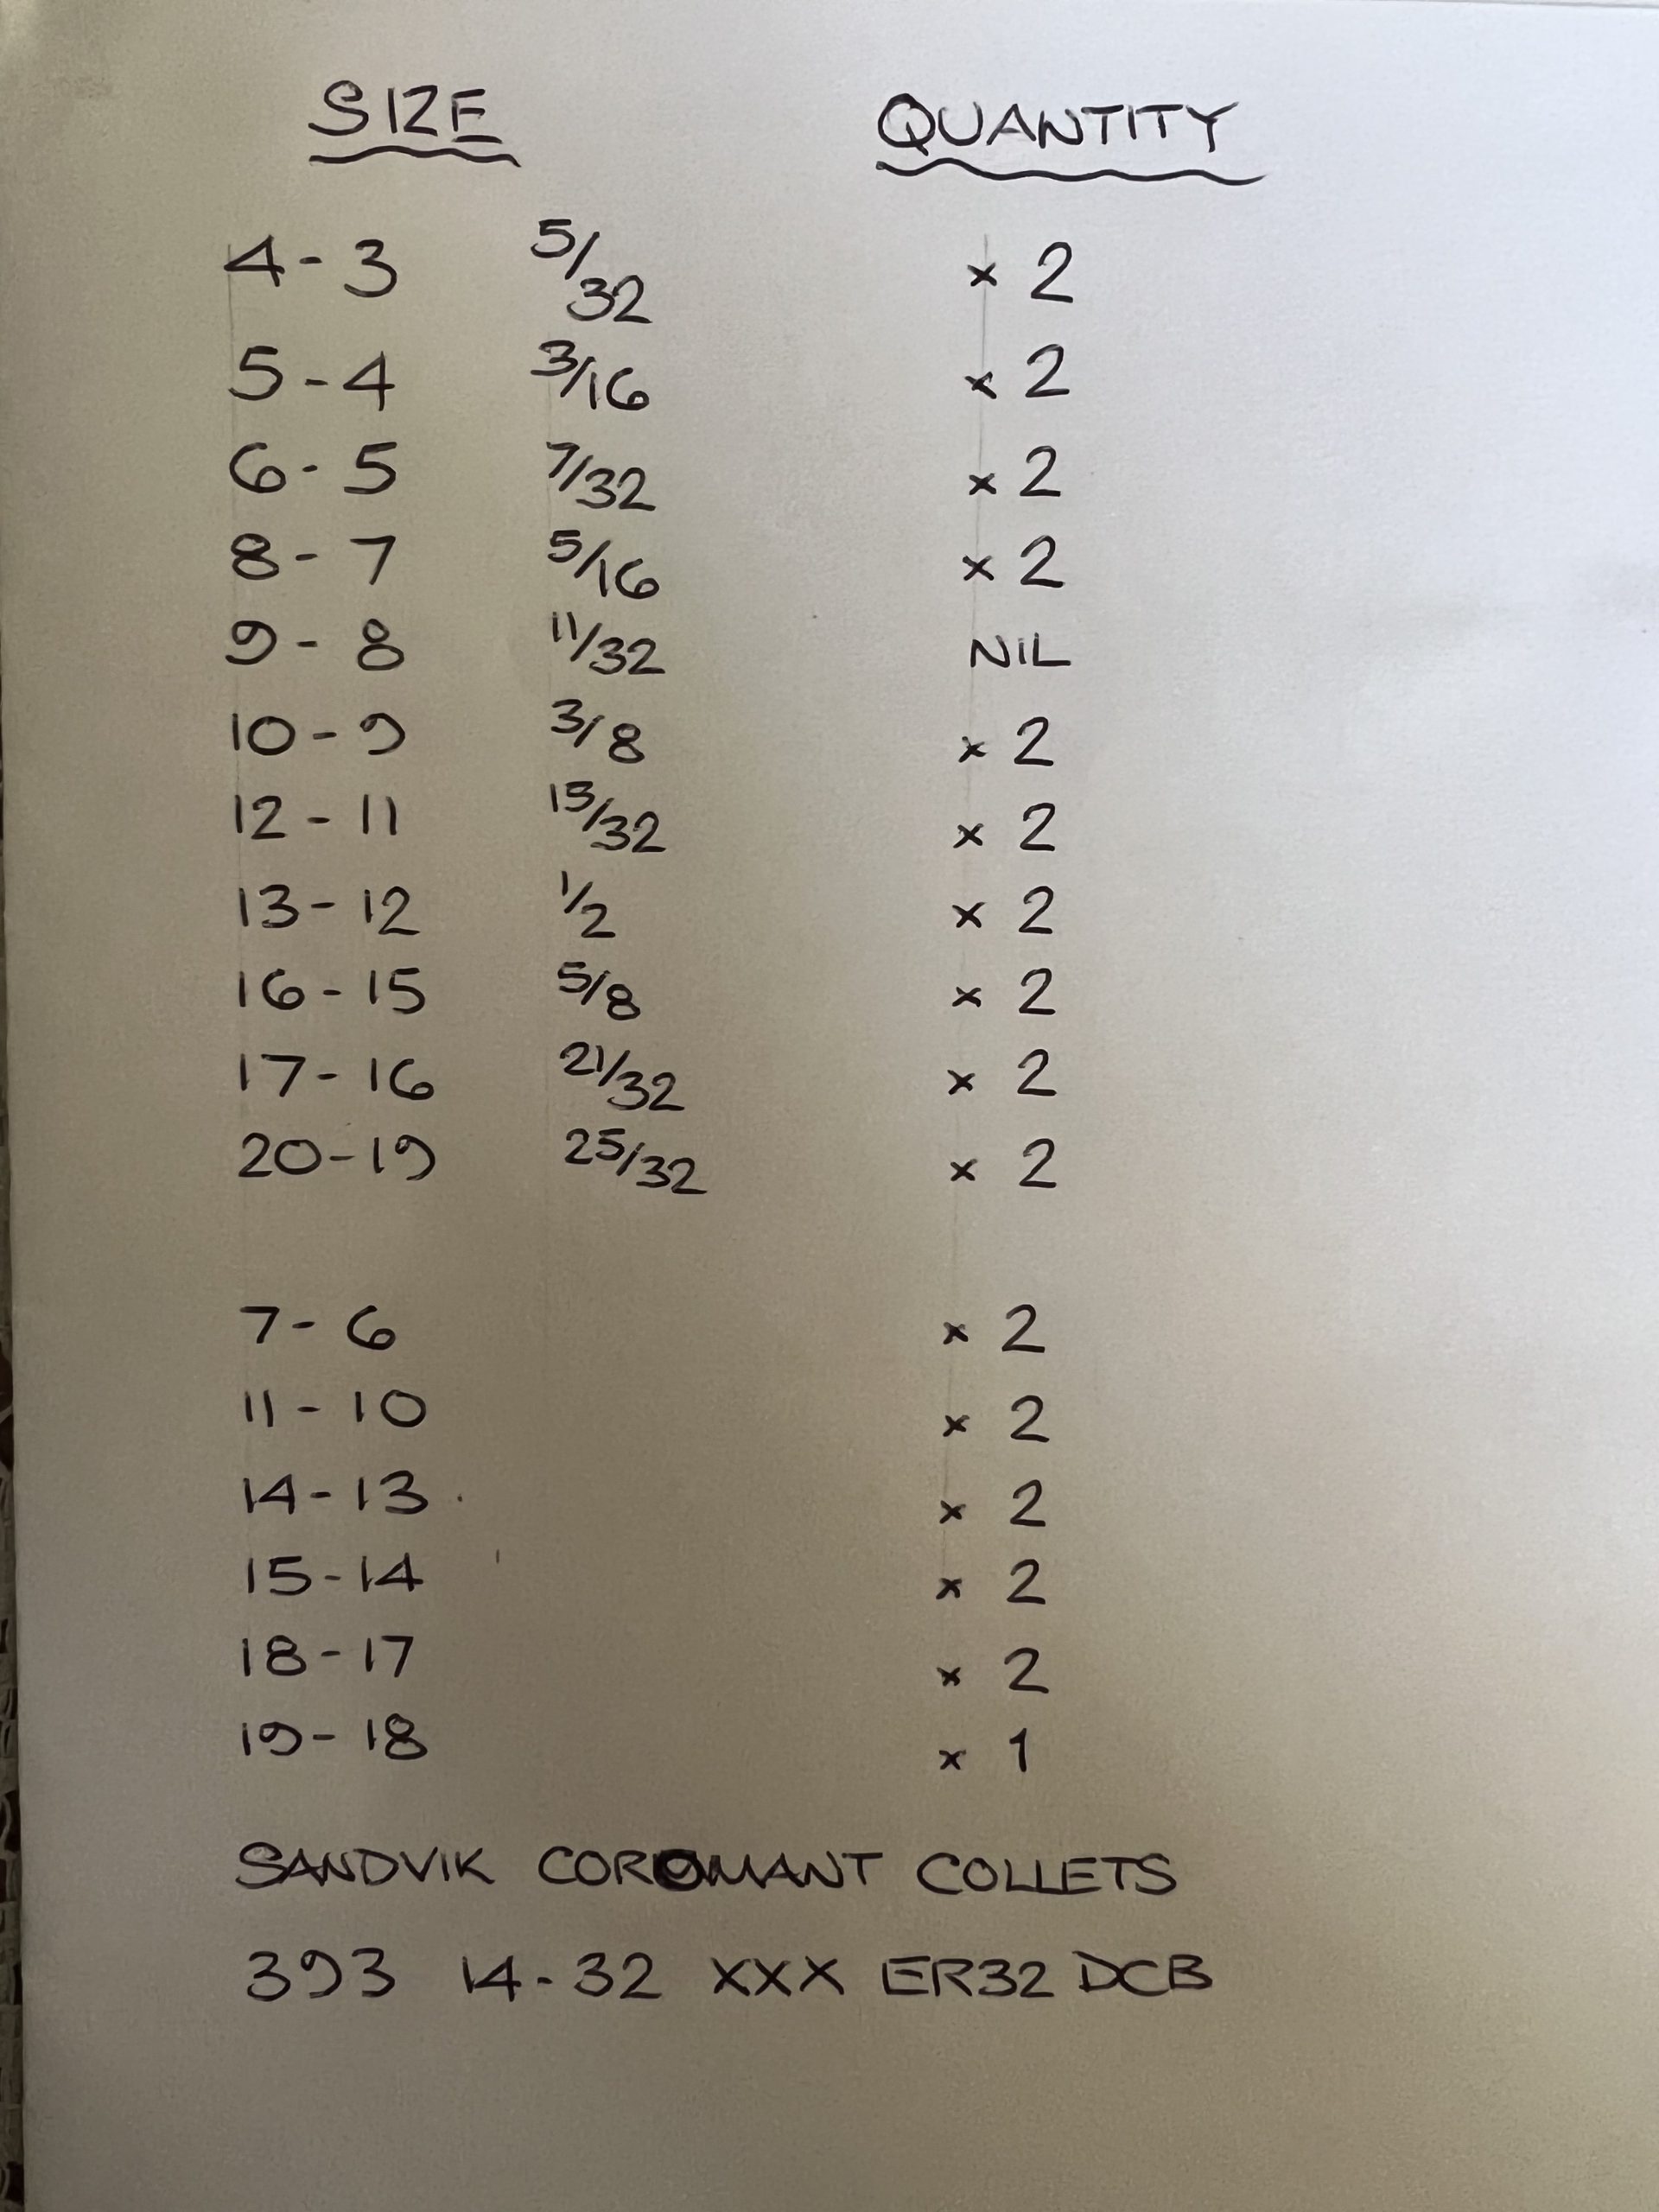 SIZE QUANTITY
4-3 5/32 x 2
5-4 3/16 x 2
6-5 7/32 x 2
8-7 5/16 x 2
9-8 11/32 NIL
10-9 3/8 x 2
12-11 15/32 x 2
13-12 1/2 x 2
16-15 5/8 x 2
17-16 21/32 x 2
20-19 25/32 x 2
7-6 x 2
11-10 x 2
14-13 x 2
15-14 x 2
18-17 x 2
19-18 x 1
SANDVIK COROMANT COLLETS
393 14-32 XXX ER32 DCB